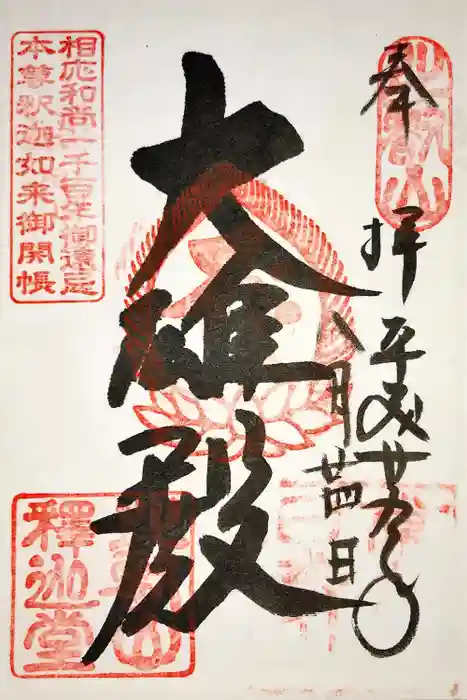 奉拝
比叡山
平成廿九年
八月廿四日
大雄殿
相応和尚一千百年御遠忌
本尊釈迦如来御開帳
釋迦堂